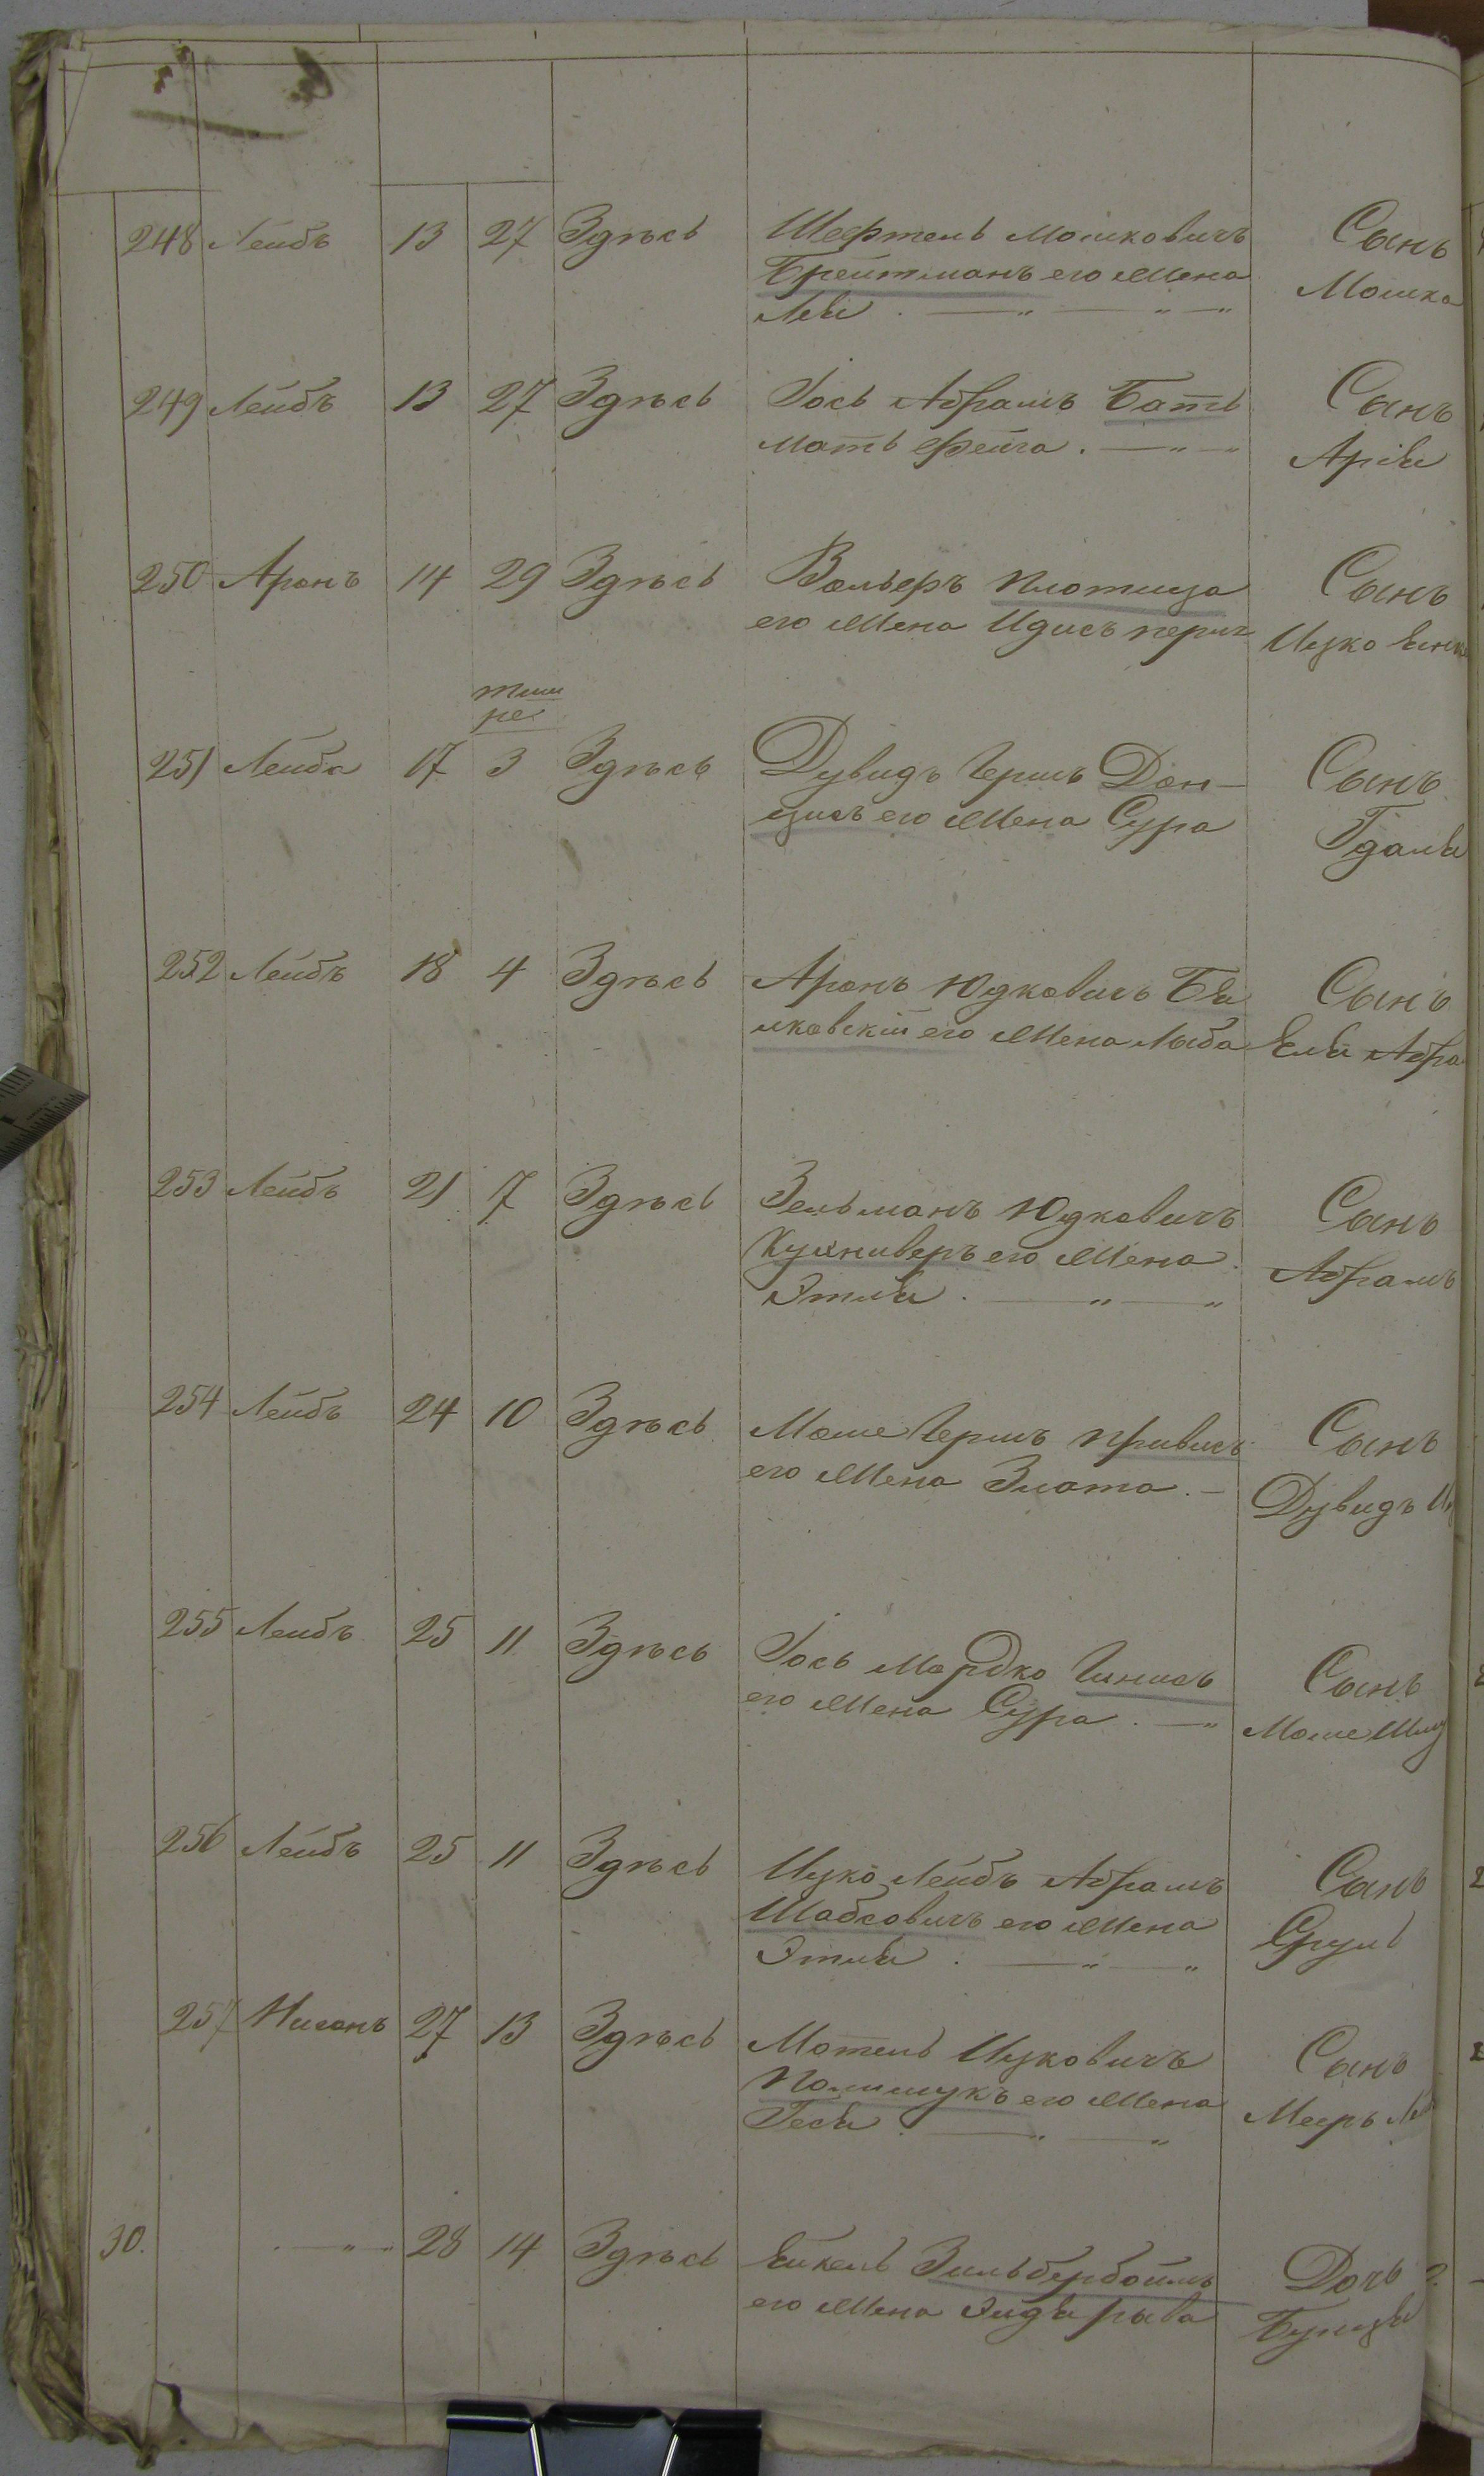 248 Лейбъ 13 27 Здѣсь Шефтель Мошковичъ Сынъ
Брейтманъ его Жена Мошко
Лея . — „ — „ — „
249 Лейбъ 13 27 Здѣсь Іось Абрамъ Бать Сынъ
мать Фейга . — „ — „ Арія
250 Аронъ 14 29 Здѣсь Вольфъ Плотица Сынъ
его Жена Идисъ Перль Ицко Янке
тиш
ре
251 Лейба 17 3 Здѣсь Дувидъ Гершъ Дон- Сынъ
цисъ его Жена Сура Гдаля
252 Лейбъ 18 4 Здѣсь Аронъ Юдковичъ Бя Сынъ
лковскій его Жена Лыба Еля Абра
253 Лейбъ 21 7 Здѣсь Зельманъ Юдковичъ Сынъ
Кушниеръ его Жена Абрамъ
Этля . — „ — „
254 Лейбъ 24 10 Здѣсь Моше Гершъ Привисъ Сынъ
его Жена Злата . — Дувидъ
255 Лейбъ 25 11 Здѣсь Іось Мордко Гинисъ Сынъ
его Жена Сура . — „ Моше Шму
256 Лейбъ 25 11 Здѣсь Ицко Лейбъ Абрамъ Сынъ
Шабсовичъ его Жена Сруль
Этля . — „ — „
257 Нисонъ 27 13 Здѣсь Мотель Ицковичъ Сынъ
Полищукъ его Жена Мееръ
Геся . — „ — „
30. — „ — „ 28 14 Здѣсь Янкель Зильбербоймъ Дочь
его Жена Эйдя рыва Бунця